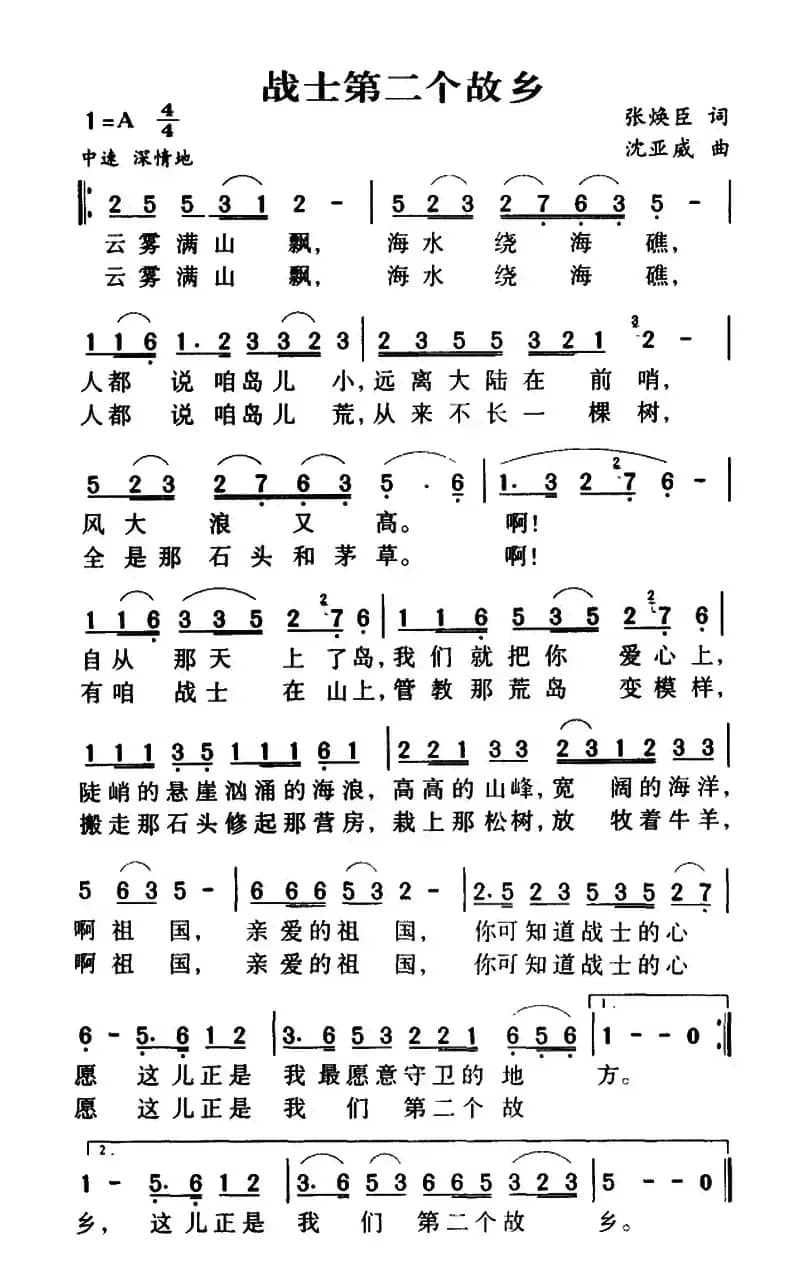 战士第二个故乡
1=A 4/4
张焕臣 词
中速 深情地
沈亚威 曲
2 5 5 3 1 2 - | 5 2 3 2 7 6 3 5 - |
云雾满山飘, 海水绕海礁,
云雾满山飘, 海水绕海礁,
1 1 6 1. 2 3 3 2 3 | 2 3 5 5 3 2 1 3 2 - |
人都说咱岛儿小,远离大陆在前哨,
人都说咱岛儿荒,从来不长一棵树,
5 2 3 2 7 6 3 5 . 6 | 1. 3 2 2 7 6 - |
风大浪又高。 啊!
全是那石头和茅草。 啊!
1 1 6 3 3 5 2 2 7 6 | 1 1 6 5 3 5 2 2 7 6 |
自从那天上了岛,我们就把你爱心上,
有咱战士在山上,管教那荒岛变模样,
1 1 1 3 5 1 1 1 6 1 | 2 2 1 3 3 2 3 1 2 3 3 |
陡峭的悬崖汹涌的海浪,高高的山峰,宽阔的海洋,
搬走那石头修起那营房,栽上那松树,放牧着牛羊,
5 6 3 5 - | 6 6 6 5 3 2 - | 2. 5 2 3 5 3 5 2 7 |
啊祖国, 亲爱的祖国, 你可知道战士的心
啊祖国, 亲爱的祖国, 你可知道战士的心
1.
6 - 5. 6 1 2 | 3. 6 5 3 2 2 1 6 5 6 | 1 - - 0 :|
愿 这儿正是我最愿意守卫的地方。
愿 这儿正是我们第二个故
2.
1 - 5. 6 1 2 | 3. 6 5 3 6 6 5 3 2 3 | 5 - - 0 |
乡, 这儿正是我们第二个故乡。